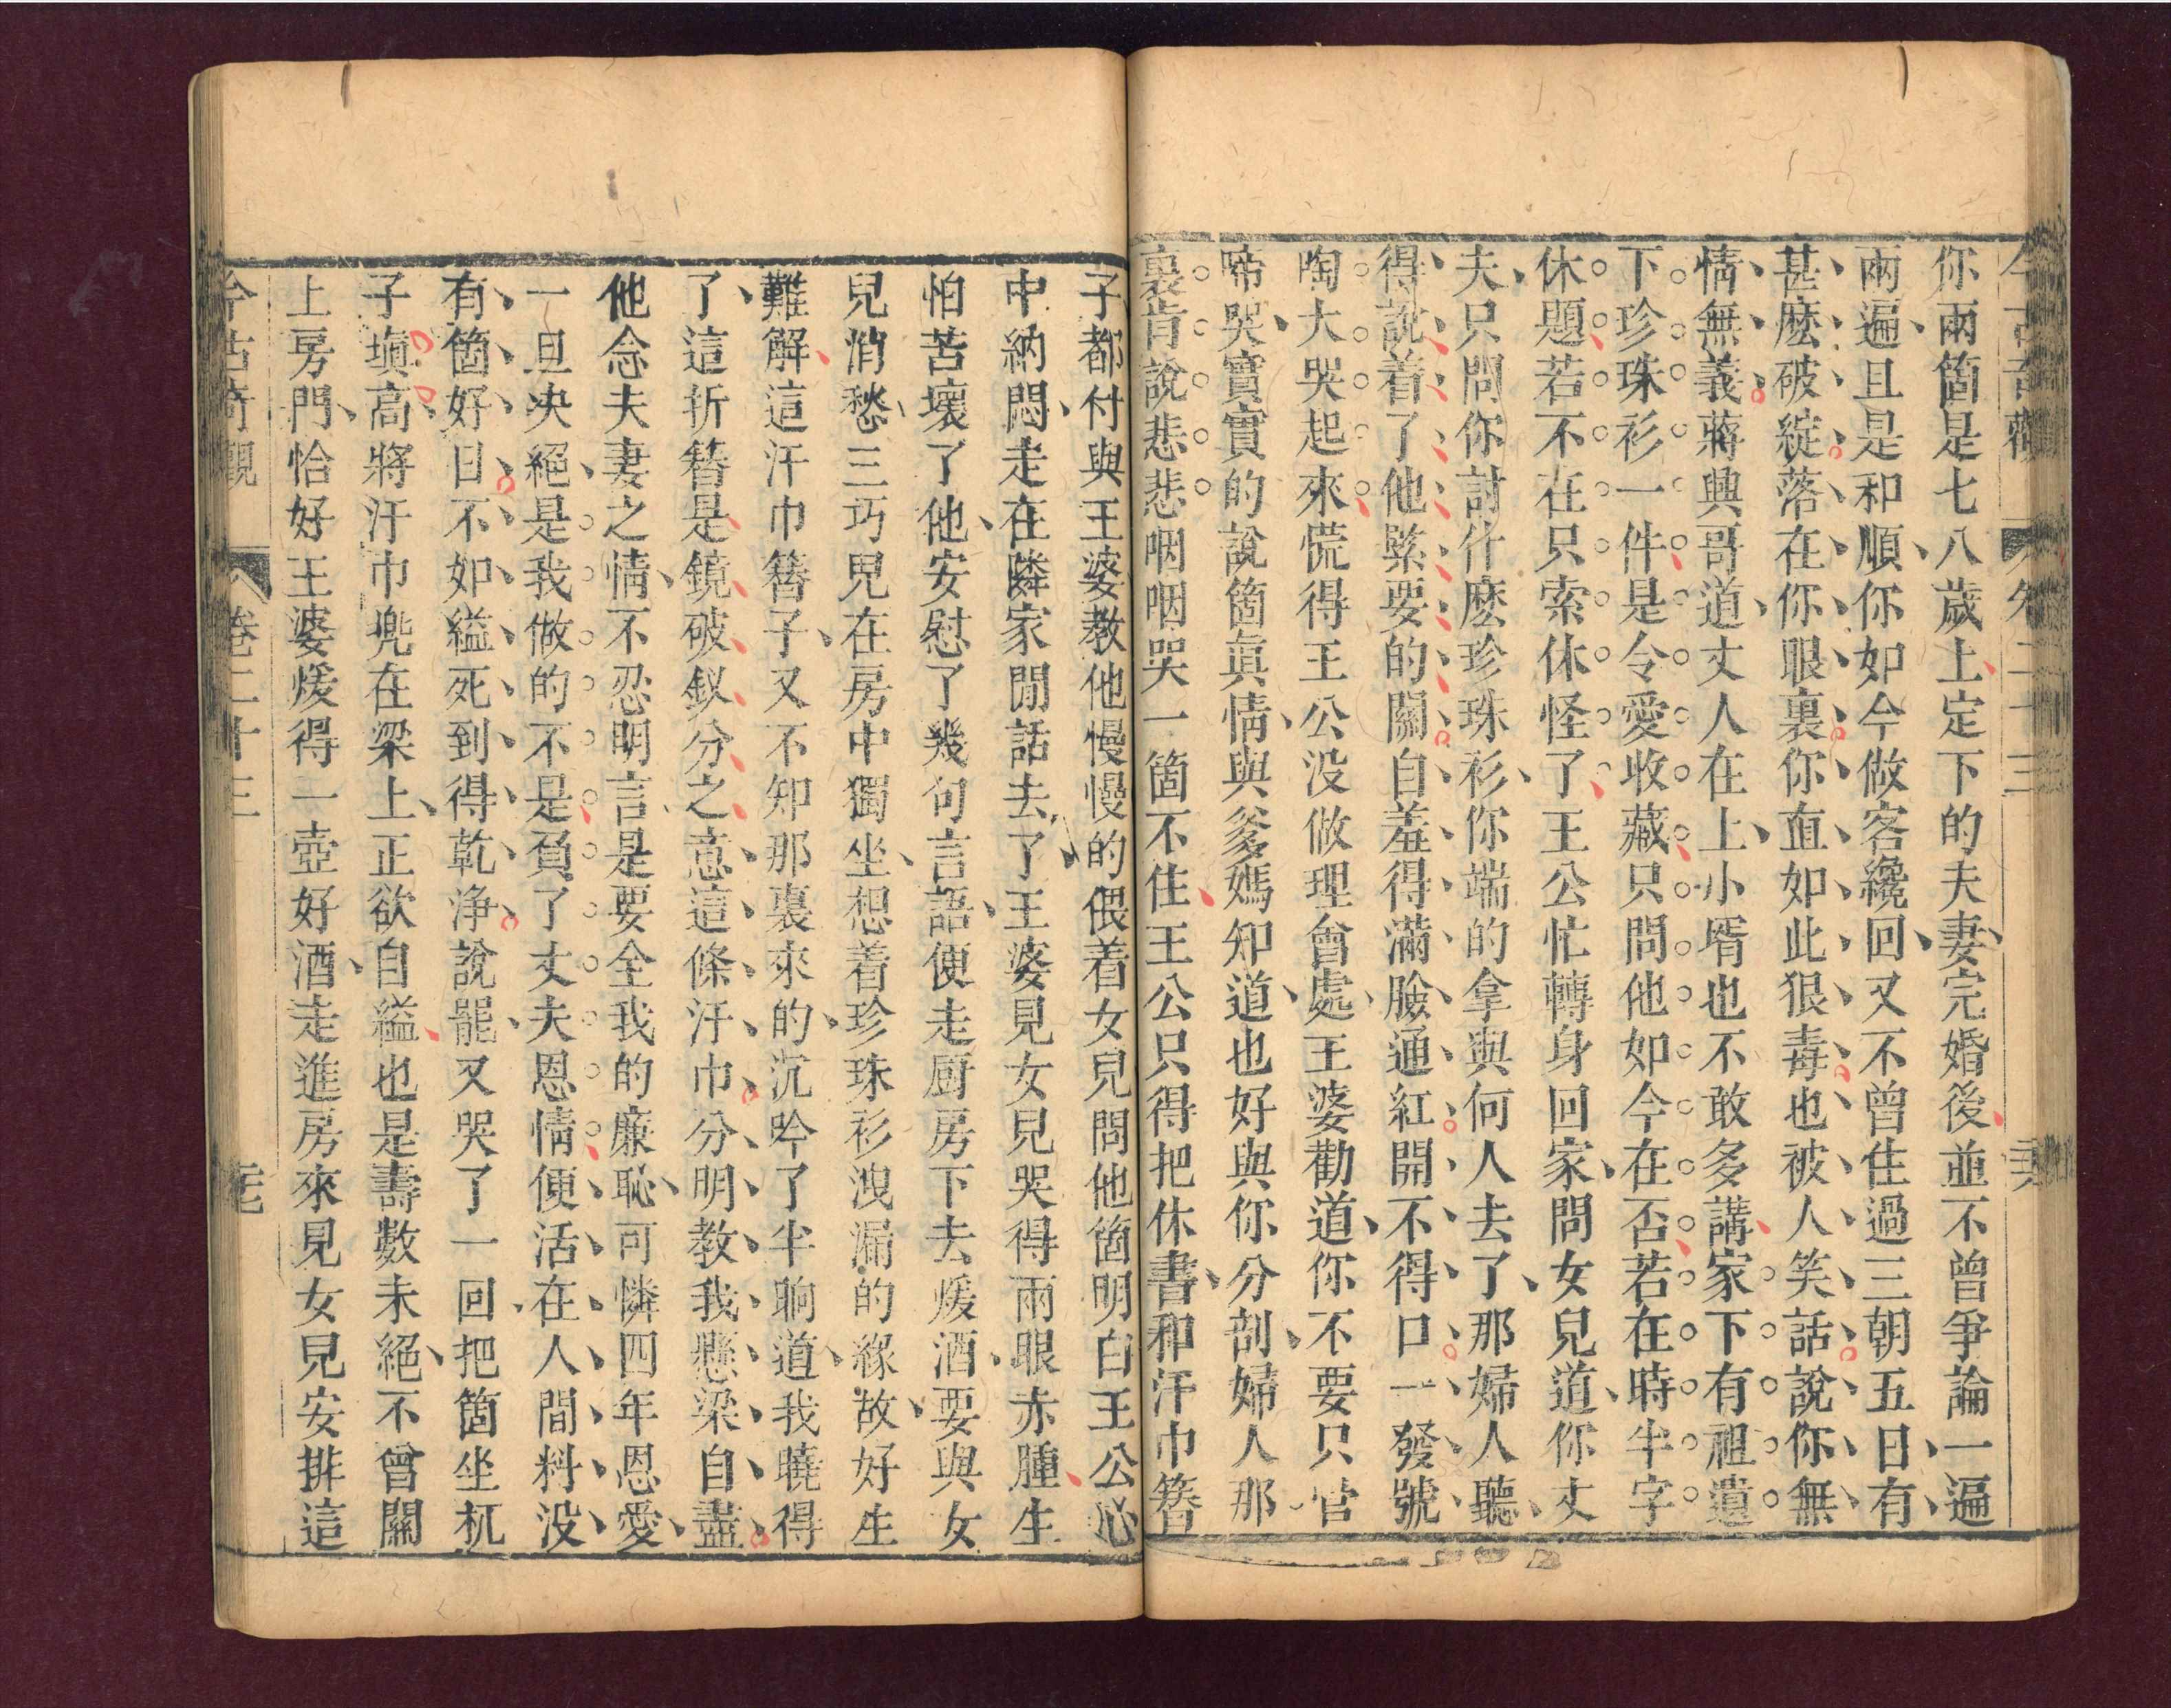 今古奇觀 卷二十三
你兩箇是七八歲上定下的夫妻完婚後並不曾爭論一遍
兩遍且是和順你如今做客纔回又不曾住過三朝五日有
甚麽破綻落在你眼裏你直如此狠毒也被人笑話說你無
情無義蔣興哥道丈人在上小壻也不敢多講家下有祖遺
下珍珠衫一件是令愛收藏只問他如今在否若在時半字
休題若不在只索休怪了王公忙轉身回家問女兒道你丈
夫只問你討什麽珍珠衫你端的拿與何人去了那婦人聽
得說着了他緊要的關自羞得滿臉通紅開不得口一發號
陶大哭起來慌得王公没做理會處王婆勸道你不要只管
啼哭實實的說箇眞情與爹媽知道也好與你分剖婦人那
裏肯說悲悲咽咽哭一箇不住王公只得把休書和汗巾簪
子都付與王婆教他慢慢的偎着女兒問他箇明白王公心
中納悶走在隣家閒話去了王婆見女兒哭得兩眼赤腫生
怕苦壞了他安慰了幾句言語便走厨房下去煖酒要與女
兒消愁三巧兒在房中獨坐想着珍珠衫洩漏的緣故好生
難解這汗巾簪子又不知那裏來的沉吟了半晌道我曉得
了這折簪是鏡破釵分之意這條汗巾分明教我懸梁自盡
他念夫妻之情不忍明言是要全我的廉恥可憐四年恩愛
一旦决絕是我做的不是負了丈夫恩情便活在人間料没
有箇好日不如縊死到得乾淨說罷又哭了一回把箇坐杌
子塡高將汗巾兜在梁上正欲自縊也是壽數未絕不曾關
上房門恰好王婆煖得一壺好酒走進房來見女兒安排這
今古奇觀 卷二十三